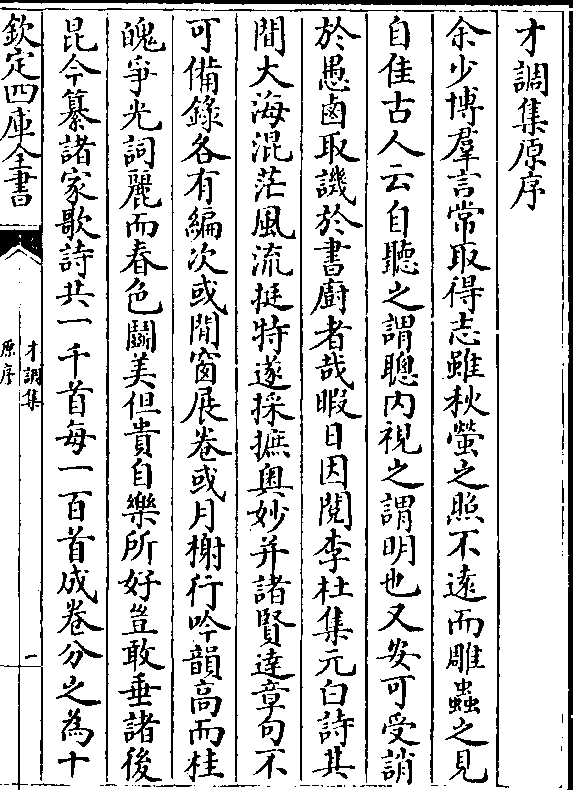 才調集原序
余少博羣言常取得志雖秋螢之照不遠而雕蟲之見
自佳古人云自聽之謂聰内視之謂明也又安可受誚
於愚鹵取譏於書廚者哉暇日因閲李杜集元白詩其
間大海混茫風流挺特遂採摭奥妙并諸賢達章句不
可備錄各有編次或閒窗展卷或月榭行吟韻高而桂
魄爭光詞麗而春色鬭美但貴自樂所好豈敢垂諸後
昆今纂諸家歌詩共一千首每一百首成卷分之為十
欽定四庫全書
才調集
原序
一